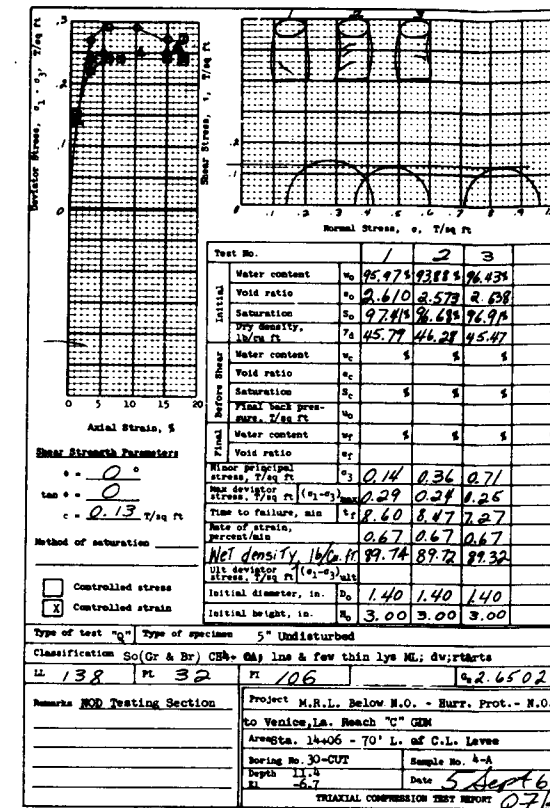 Deviator Stress, σ1 - σ3, T/sq ft
.3
.2
.1
0
0 5 10 15 20
Axial Strain, %
Shear Stress, τ, T/sq ft
1 2 3
.2
.1
0 .1 .2 .3 .4 .5 .6 .7 .8 .9
Normal Stress, σ, T/sq ft
Shear Strength Parameters
φ = 0 °
tan φ = 0
c = 0.13 T/sq ft
Method of saturation
Controlled stress
X Controlled strain
Test No. 1 2 3
Initial
Water content w0 95.97% 93.88% 96.43%
Void ratio e0 2.610 2.573 2.638
Saturation S0 97.41% 96.68% 96.91%
Dry density, lb/cu ft γd 45.79 46.28 45.47
Before Shear
Water content wc % % %
Void ratio ec
Saturation Sc % % %
Final back pressure, T/sq ft u0
Final
Water content wf % % %
Void ratio ef
Minor principal stress, T/sq ft σ3 0.14 0.36 0.71
Max deviator stress, T/sq ft (σ1-σ3)max 0.29 0.24 0.25
Time to failure, min tf 8.60 8.47 7.27
Rate of strain, percent/min 0.67 0.67 0.67
Wet density, lb/Cu. ft 89.74 89.72 89.32
Ult deviator stress, T/sq ft (σ1-σ3)ult
Initial diameter, in. D0 1.40 1.40 1.40
Initial height, in. H0 3.00 3.00 3.00
Type of test "Q" Type of specimen 5" Undisturbed
Classification So(Gr & Br) CH4+ OA; lns & few thin lys ML; dw;rtarts
LL 138 PL 32 PI 106 Gs 2.6502
Remarks NOD Testing Section
Project M.R.L. Below N.O. - Hurr. Prot.- N.O.
to Venice, La. Reach "C" GDM
Area Sta. 14+06 - 70' L. of C.L. Levee
Boring No. 30-CUT Sample No. 4-A
Depth 11.4
El -6.7
Date 5 Sept 6
TRIAXIAL COMPRESSION TEST REPORT